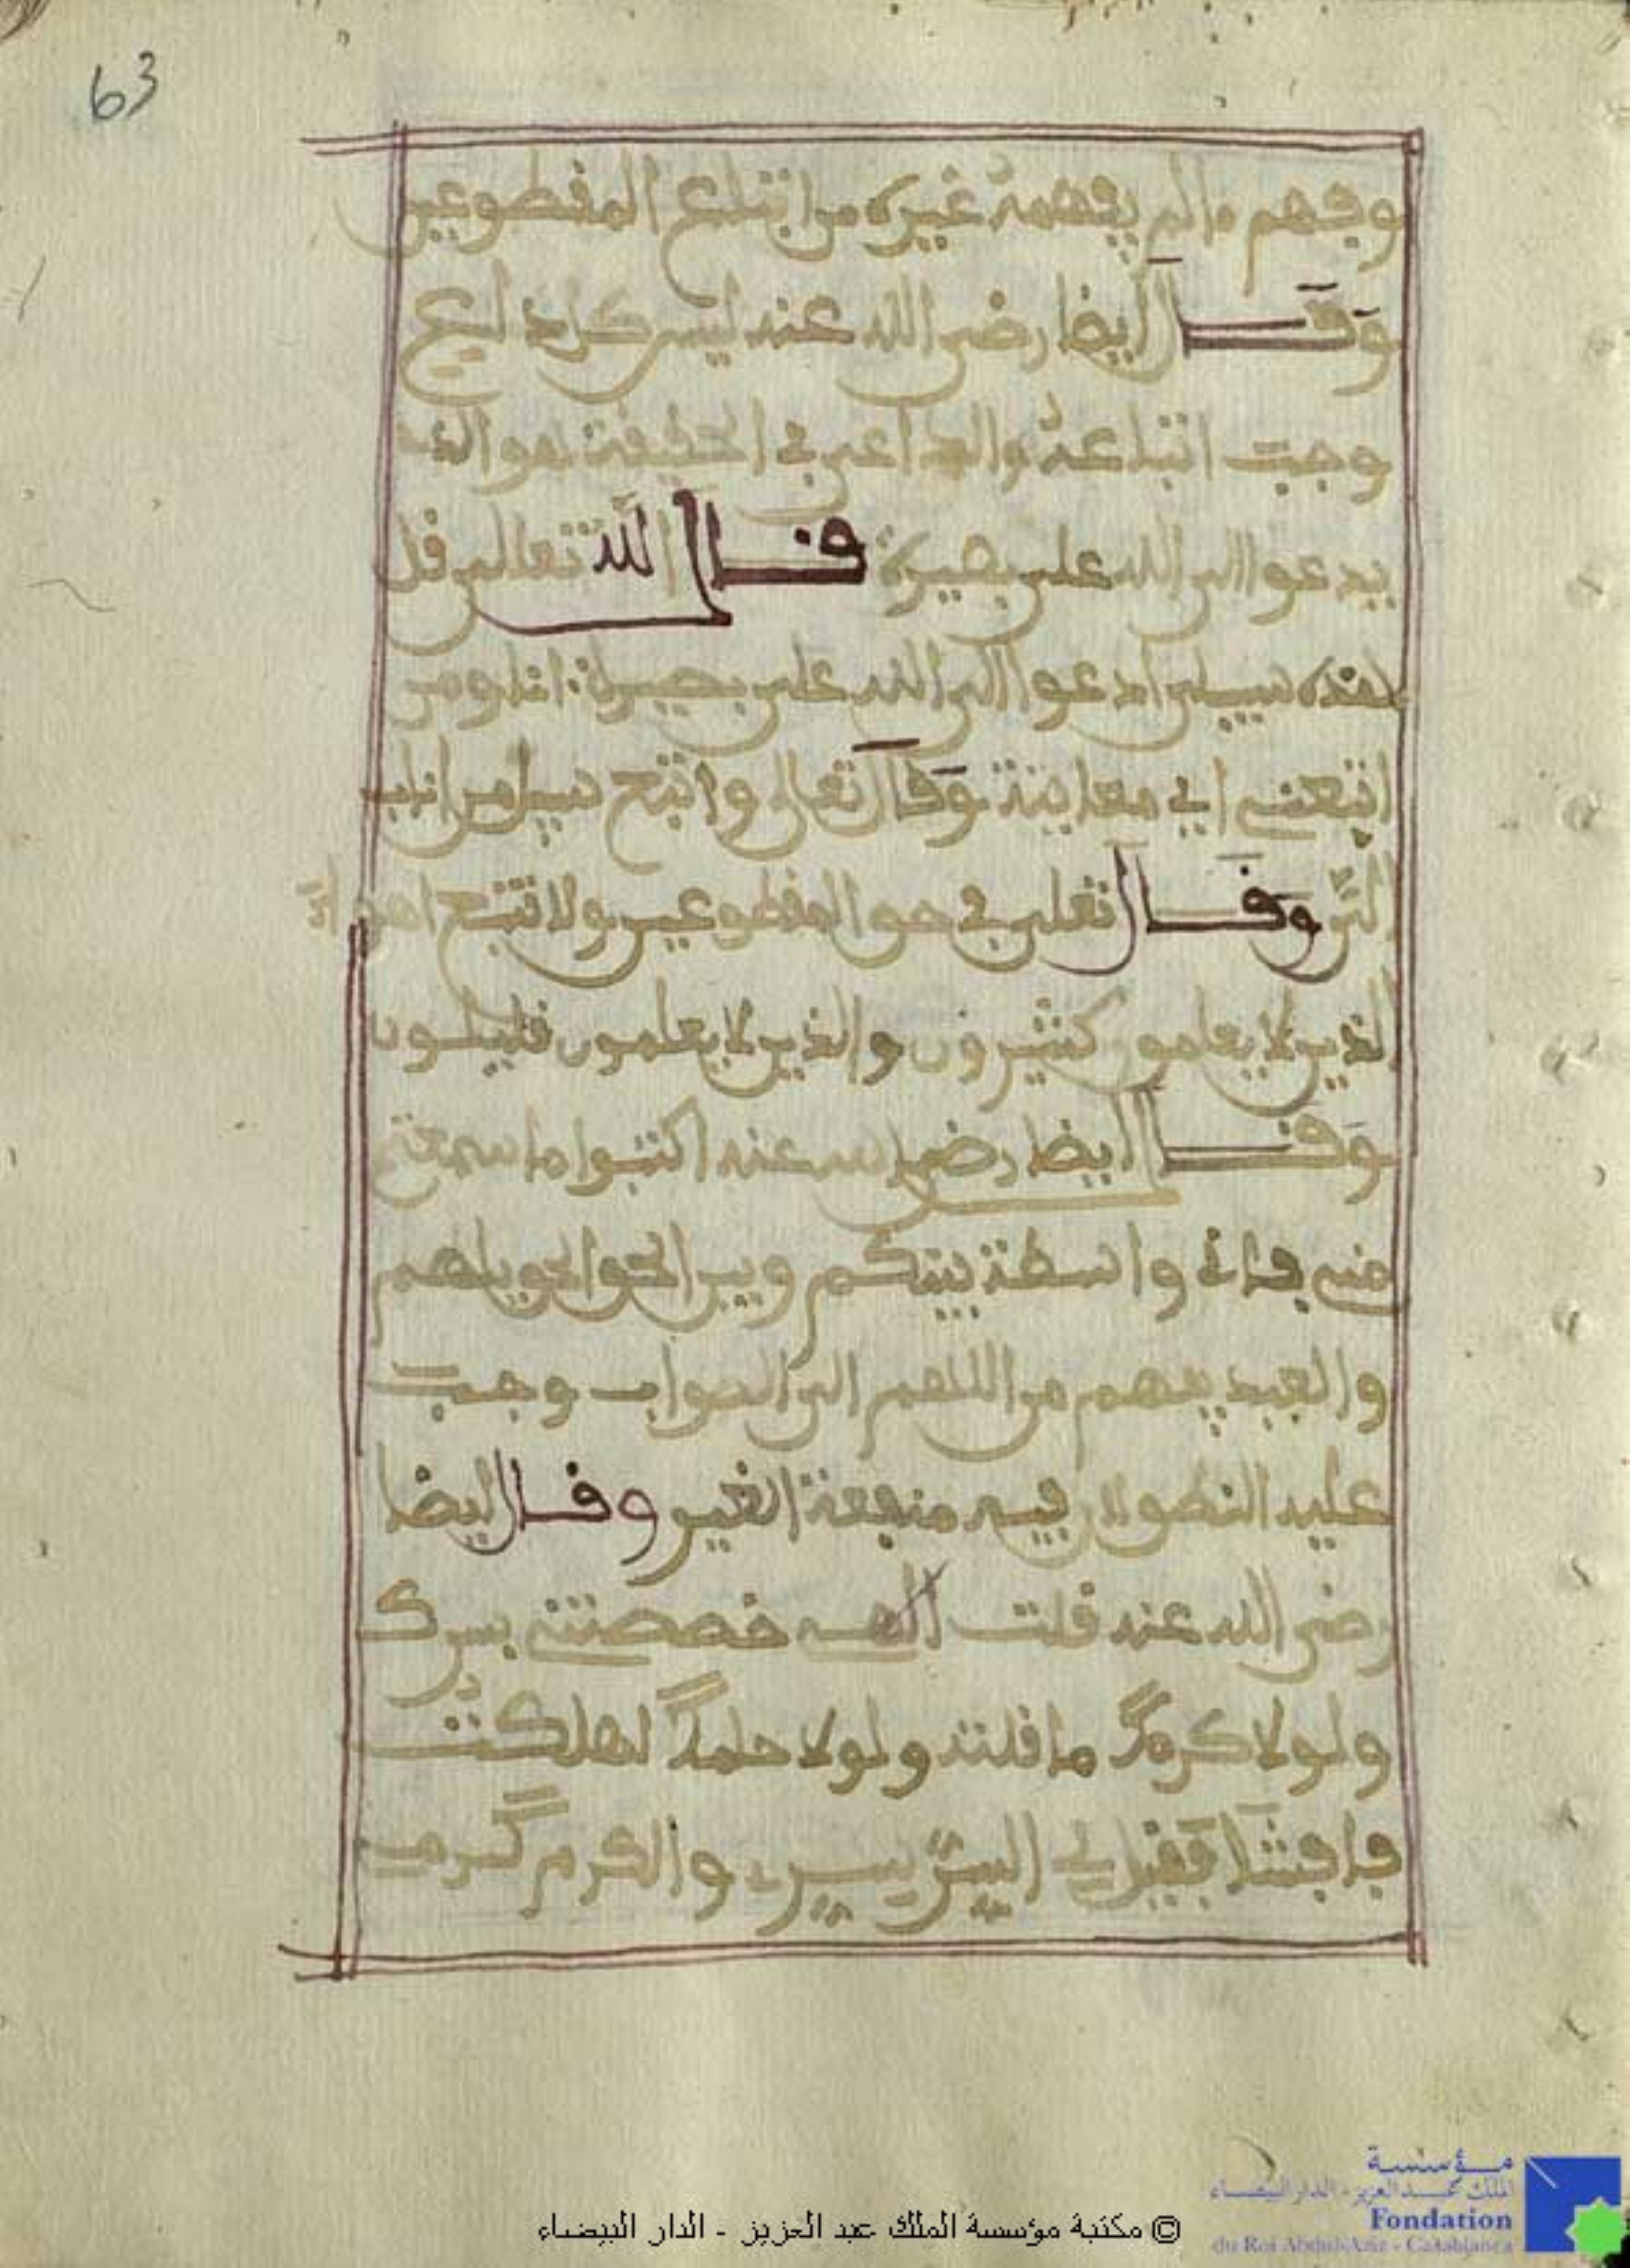 63
وفهم ما لم يفهمه غيره من اتباع المقطوعين
وقال ايضا رضي الله عنه ليس كل داع
وجبت اتباعه والداعي في الحقيقة هو الذي
يدعوا الى الله على بصيرة قال الله تعالى قل
هذه سبيلي ادعوا الى الله على بصيرة انا ومن
اتبعني اي معاينة وقال تعالى واتبع سبيل من اناب
الي وقال تعلى في حق المقطوعين ولا تتبع اهواء
الذين لا يعلمون كثيرون والذين لا يعلمون قليلون
وقال ايضا رضي الله عنه اكتبوا ما سمعتم
مني فاني واسطة بينكم وبين الحق الحق يلهم
والعبد يفهم من اللهم الى الصواب وجبت
عليه النطق لان فيه منفعة الغير وقال ايضا
رضي الله عنه قلت الهي خصصتني بسرك
ولولا كرمك ما قلته ولولا حلمك لهلكت
والكرم
مؤسسة
الملك عبد العزيز - الدار البيضاء
Fondation
du Roi Abdul-Aziz - Casablanca
© مكتبة مؤسسة الملك عبد العزيز - الدار البيضاء